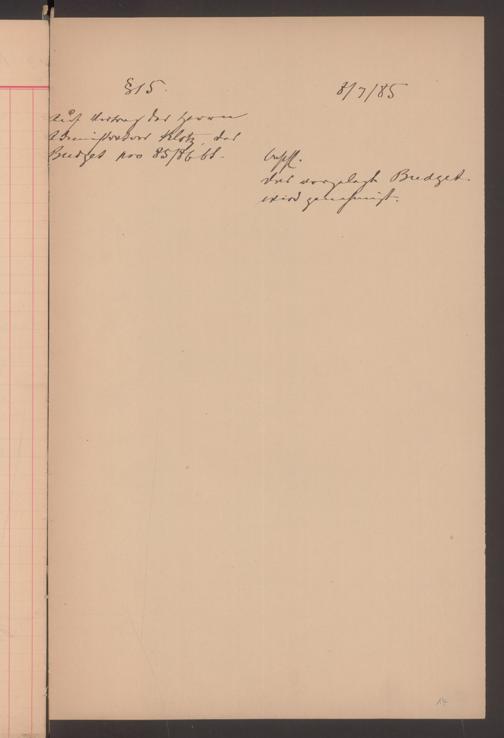 §15.
8/7/85
Auf Vortrag des Herrn
Administrator Klotz, das
Budget pro 85/86 btr.
beschl.
das vorgelegte Budget
wird genehmigt.
14